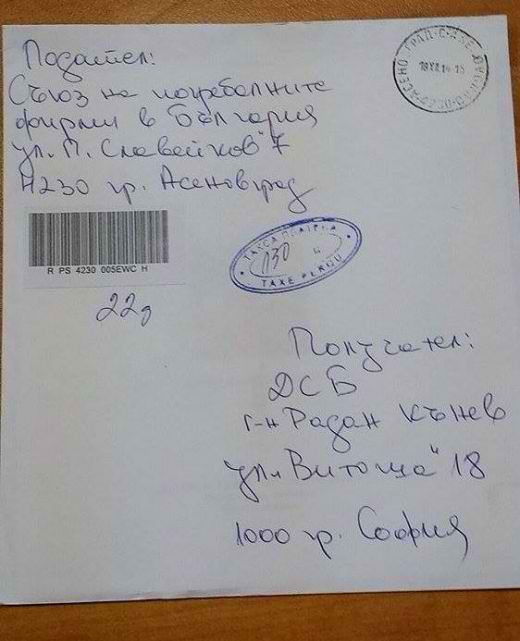 Подател:
Съюз на погребалните
фирми в България
ул. "П. Славейков" 7
4230 гр. Асеновград
R PS 4230 005EWC H
22g
ТАКСА ПЛАТЕНА
130
TAXE PERÇU
Получател:
ДСБ
г-н Радан Кънев
ул. "Витоша" 18
1000 гр. София